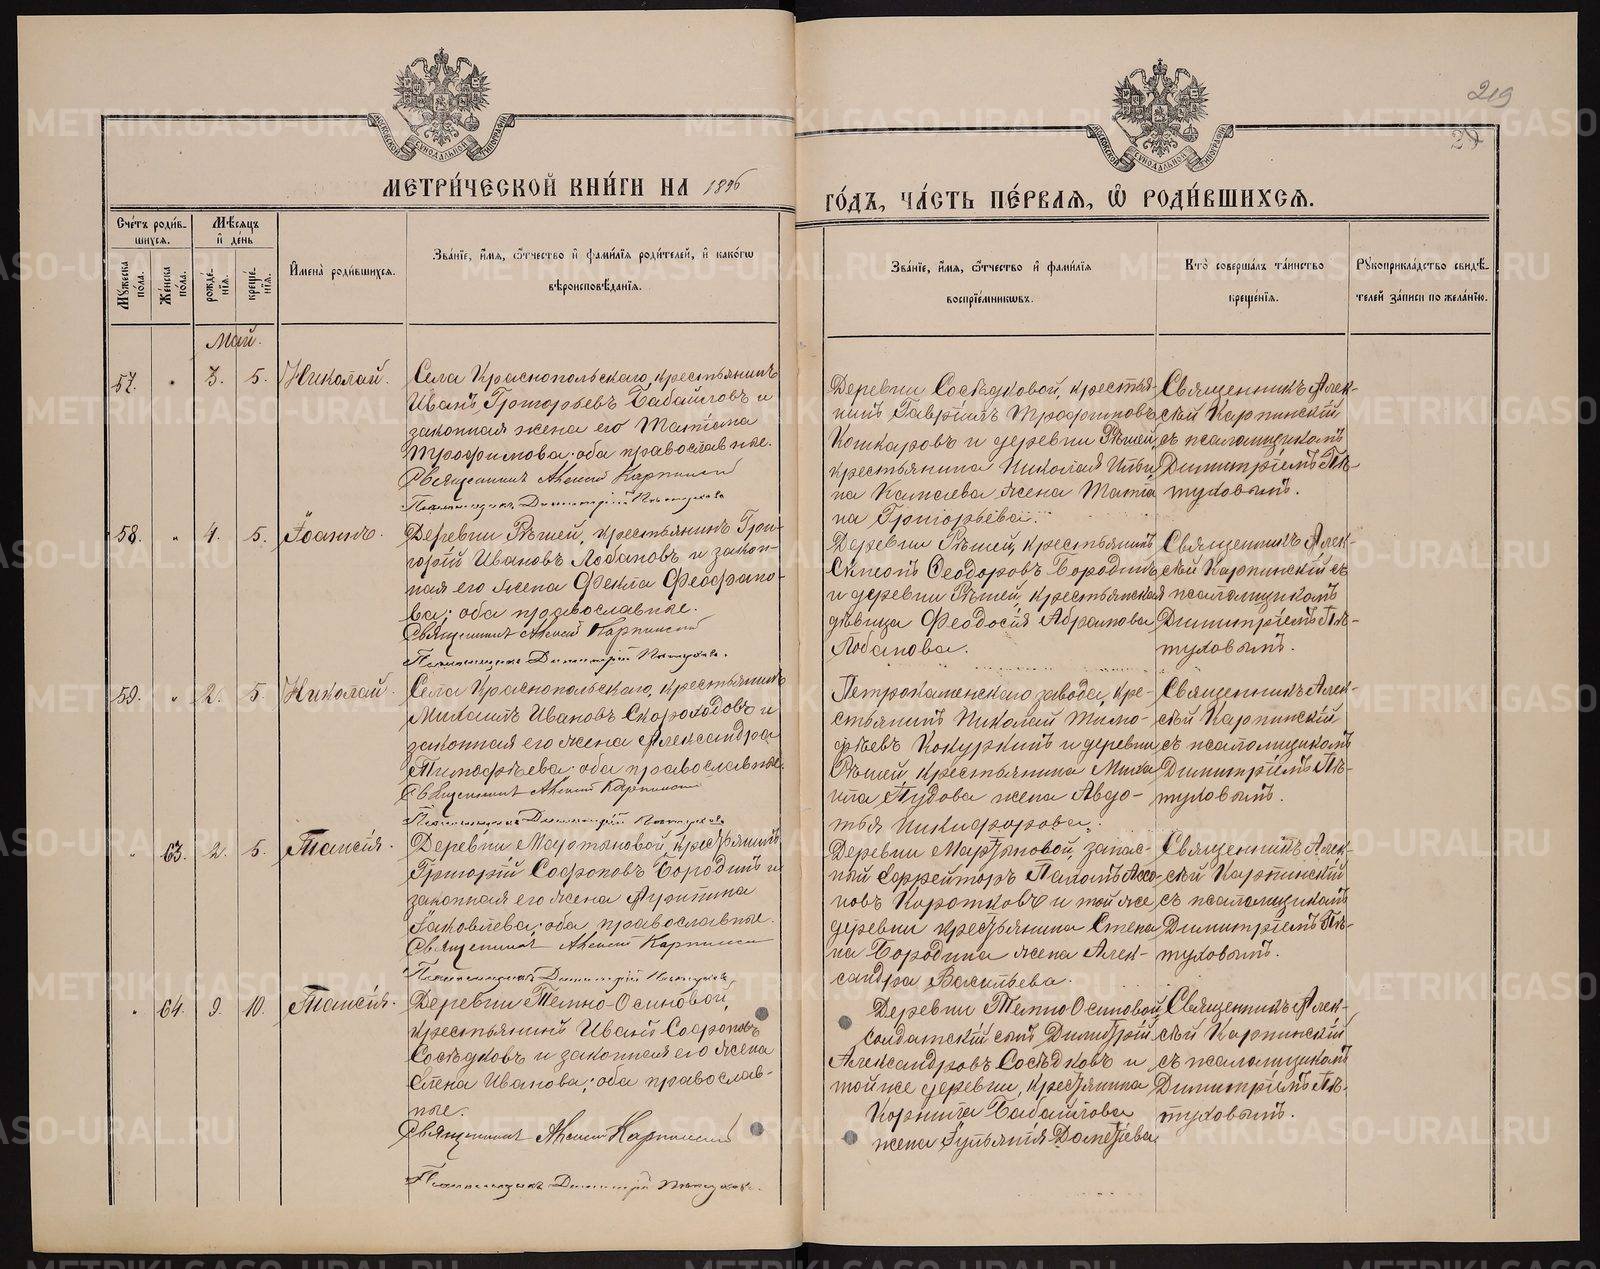 219
МЕТРИ́ЧЕСКОЙ КНИ́ГИ НА 1896
ГО́ДЪ, ЧА́СТЬ ПЕ́РВАЯ, Ѽ РОДИ́ВШИХСЯ.
Сче́тъ роди́в-
шихся.
Мꙋ́жеска по́ла.
Же́нска по́ла.
Мѣ́сяцъ
и҆ де́нь
рожде́-нїя.
креще́-нїя.
И҆мена̀ роди́вшихся.
Зва́нїе, и҆́мя, ѻ҆́тчество и҆ фами́лїя роди́телей, и҆ како́гѡ
вѣроисповѣ́данїя.
Зва́нїе, и҆́мя, ѻ҆́тчество и҆ фами́лїя
воспрїе́мникѡвъ.
Кто̀ соверша́лъ та́инство
креще́нїя.
Рꙋкоприкла́дство свидѣ́-
телей за́писи по жела́нїю.
Май.
57. " 3. 5. Николай.
Села Краснопольскаго, крестьянинъ
Иванъ Григорьевъ Бабайловъ и
законная жена его Татіана
Трофимова; оба православные.
Священникъ Алексій Карпинскій
Псаломщикъ Димитрій Пѣтуховъ
Деревни Сосѣдковой, крестья-
нинъ Гавріилъ Трофимовъ
Кошкаровъ и деревни Рѣшей,
крестьянина Николая Ильи
на Камаева жена Татіа
на Григорьева.
Священникъ Алек-
сѣй Карпинскій
съ псаломщикомъ
Димитріемъ Пѣ-
туховымъ.
58. " 4. 5. Іоаннъ.
Деревни Рѣшей, крестьянинъ Гри-
горій Ивановъ Лобановъ и закон-
ная его жена Фекла Феофано-
ва; оба православные.
Священникъ Алексій Карпинскій
Псаломщикъ Димитрій Пѣтуховъ.
Деревни Рѣшей, крестьянинъ
Симеонъ Ѳеодоровъ Бородинъ
и деревни Рѣшей, крестьянская
дѣвица Феодосія Абрамова
Лобанова.
Священникъ Алек-
сѣй Карпинскій съ
псаломщикомъ
Димитріемъ Пѣ-
туховымъ.
59. " 2. 5. Николай.
Села Краснопольскаго, крестьянинъ
Михаилъ Ивановъ Скороходовъ и
законная его жена Александра
Тимофѣева; оба православные.
Священникъ Алексій Карпинскій
Псаломщикъ Димитрій Пѣтуховъ
Петрокаменскаго завода, кре-
стьянинъ Николай Тимо-
фѣевъ Кокуркинъ и деревни
Рѣшей, крестьянина Миха
ила Пудова жена Авдо-
тья Никифорова.
Священникъ Алек-
сѣй Карпинскій
съ псаломщикомъ
Димитріемъ Пѣ-
туховымъ.
" 63. 2. 5. Таисія.
Деревни Мартяновой, крестьянинъ
Григорій Софоновъ Бородинъ и
законная его жена Агрипина
Іаковлева; оба православные.
Священникъ Алексій Карпинскій
Псаломщикъ Димитрій Пѣтуховъ
Деревни Мартяновой, запас-
ный ефрейторъ
Коротковъ и той же
деревни крестьянина Степа
на Бородина жена Алек-
сандра Васильева.
Священникъ Алек-
сѣй Карпинскій
съ псаломщикомъ
Димитріемъ Пѣ-
туховымъ.
" 64. 9. 10. Таисія.
Деревни Темно-Осиновой,
крестьянинъ Иванъ Софоновъ
Сосѣдковъ и законная его жена
Елена Иванова; оба православ-
ные.
Священникъ Алексій Карпинскій
Псаломщикъ Димитрій Пѣтуховъ.
Деревни Темно Осиновой,
солдатскій сынъ Димитрій
Александровъ Сосѣдковъ и
той же деревни, крестьянина
Корнила Бабайлова
жена Іуліанія Дометіева
Священникъ Алек-
сѣй Карпинскій
съ псаломщикомъ
Димитріемъ Пѣ-
туховымъ.
METRIKI.GASO-URAL.RU